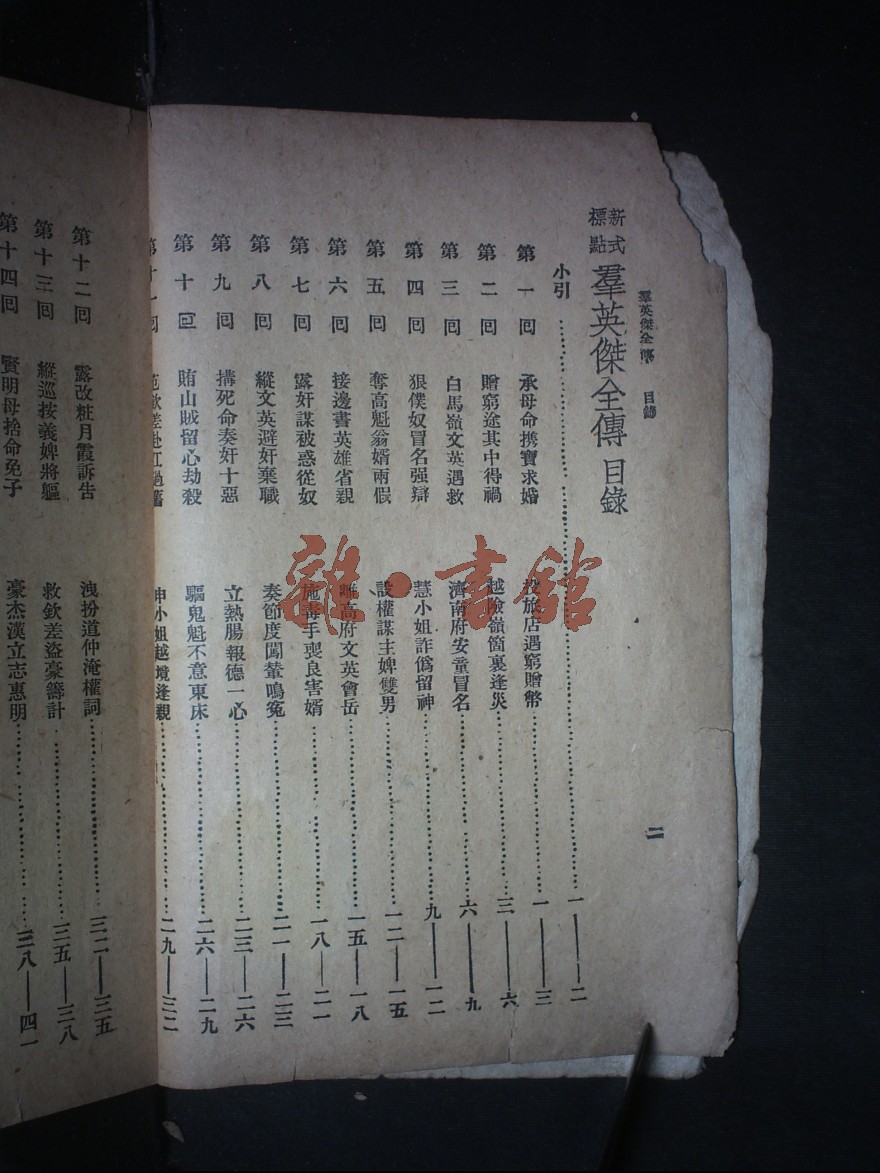 羣英傑全傳 目錄
二
新式標點 羣英傑全傳 目錄
小引……一——二
第一回 承母命携寶求婚 投旅店遇窮贈幣……一——三
第二回 贈窮途其中得禍 越險嶺箇裏逢災……三——六
第三回 白馬嶺文英遇救 濟南府安童冒名……六——九
第四回 狠僕奴冒名强辯 慧小姐詐僞留神……九——一二
第五回 奪高魁翁婿兩假 設權謀主婢雙男……一二——一五
第六回 接邊書英雄省親 離高府文英會岳……一五——一八
第七回 露奸謀被惑從奴 施毒手喪良害婿……一八——二一
第八回 縱文英避奸棄職 奏節度闖輦鳴冤……二一——二三
第九回 搆死命奏奸十惡 立熱腸報德一心……二三——二六
第十回 賄山賊留心劫殺 驅鬼魁不意東床……二六——二九
第十一回 范欽差赴江過舊 申小姐越境逢親……二九——三二
第十二回 露改粧月霞訴告 洩扮道仲淹權詞……三二——三五
第十三回 縱巡按義婢將軀 救欽差盜豪籌計……三五——三八
第十四回 賢明母捨命免子 豪杰漢立志惠明……三八——四一
雜·書館